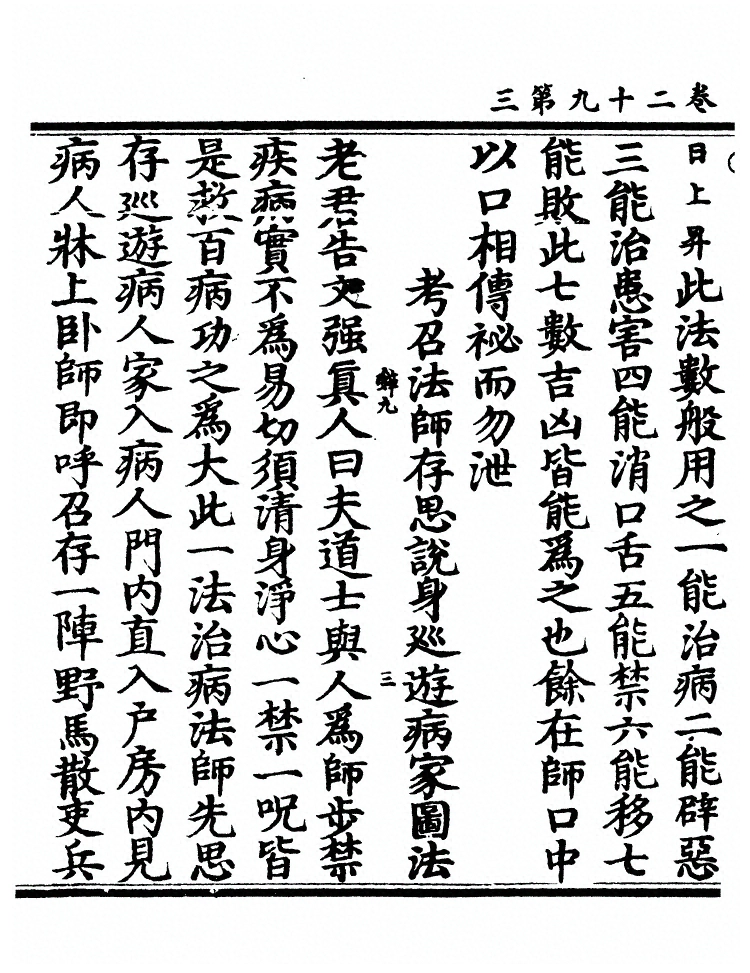 卷二十九第三
日上昇此法數般用之一能治病二能辟惡
三能治患害四能消口舌五能禁六能移七
能敗此七數吉凶皆能爲之也餘在師口中
以口相傳祕而勿泄
考召法師存思說身巡遊病家圖法
三
老君告文强眞人曰夫道士與人爲師步禁
疾病實不爲易切須清身淨心一禁一呪皆
是救百病功之爲大此一法治病法師先思
存巡遊病人家入病人門內直入户房內見
病人牀上卧師即呼召存一陣野馬散吏兵